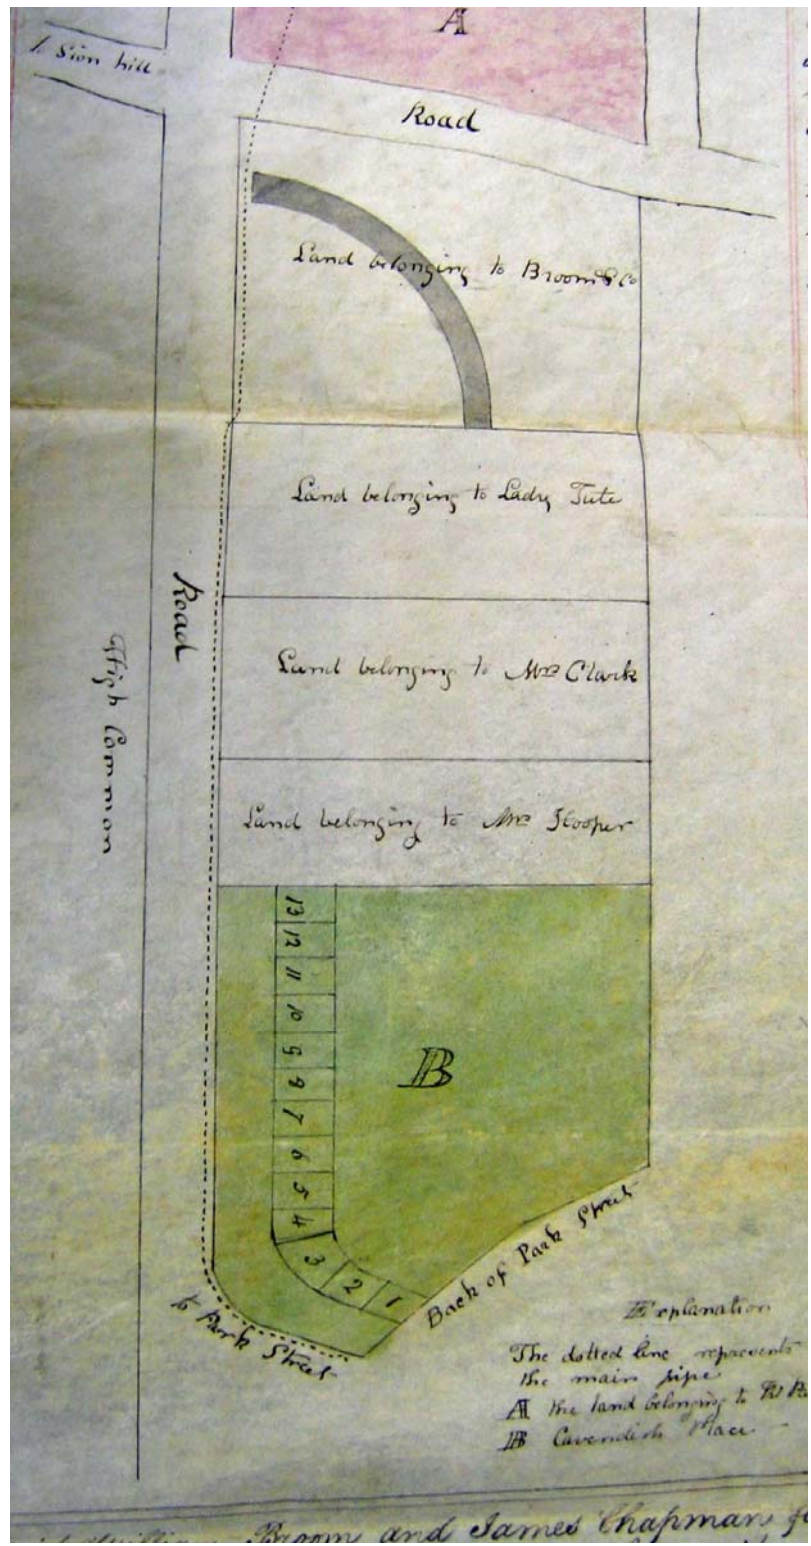 A
to Sion hill
Road
Land belonging to Broom & Co
Land belonging to Lady Tute
Road
Land belonging to Mrs Clark
High Common
Land belonging to Mrs Hooper
13
12
11
10
9
8
7
6
5
4
3
2
1
B
Back of Park Street
to Park Street
Explanation
The dotted line represents
the main pipe
A the land belonging to
B Cavendish Place
Broom and James Chapman